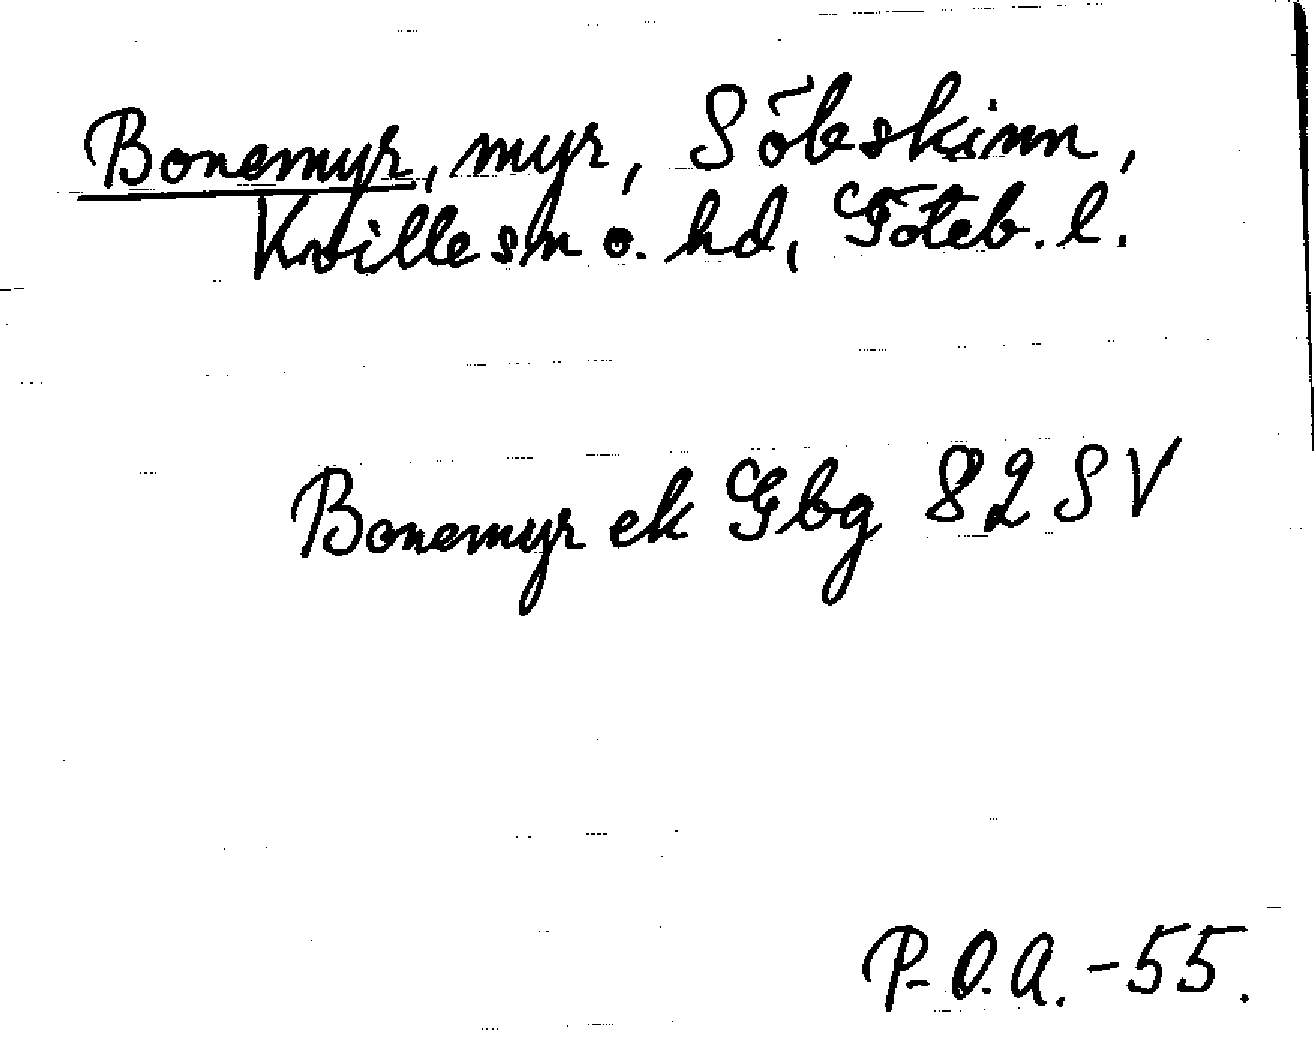 Bonemyr, myr, Söbeskinn,
Kville sn o. hd, Göteb. l.
Bonemyr ek Gbg 82 SV
P-O.A. -55.